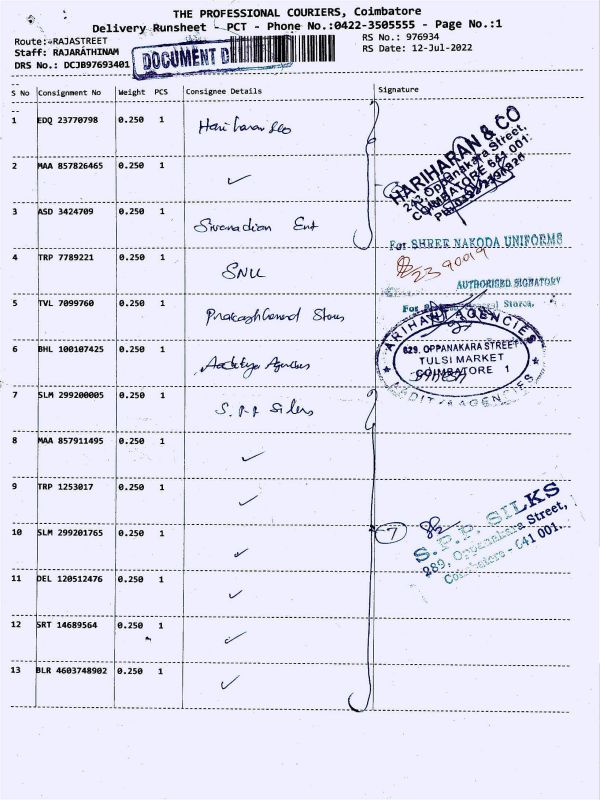 THE PROFESSIONAL COURIERS, Coimbatore
Delivery Runsheet - PCT - Phone No.:0422-3505555 - Page No.:1
Route: RAJASTREET
RS No.: 976934
Staff: RAJARATHINAM
RS Date: 12-Jul-2022
DRS No.: DCJB97693401
DOCUMENT D
S No Consignment No Weight PCS Consignee Details Signature
1 EDQ 23770798 0.250 1
2 MAA 857826465 0.250 1
HARIHARAN & CO
247 Oppanakara Street,
COIMBATORE 641 001.
3 ASD 3424709 0.250 1
For SHREE NAKODA UNIFORMS
4 TRP 7789221 0.250 1 SNU
AUTHORISED SIGNATORY
5 TVL 7099760 0.250 1 Prakash General Stores
ARIHANT AGENCIES
829, OPPANAKARA STREET
TULSI MARKET
COIMBATORE 1
6 BHL 100107425 0.250 1 Aaditya Agencies
AADITYA AGENCIES
7 SLM 299200005 0.250 1 S.P.P Silks
8 MAA 857911495 0.250 1
9 TRP 1253017 0.250 1
10 SLM 299201765 0.250 1 7
S.P.P. SILKS
289, Oppanakara Street,
Coimbatore - 641 001.
11 DEL 120512476 0.250 1
12 SRT 14689564 0.250 1
13 BLR 4603748902 0.250 1